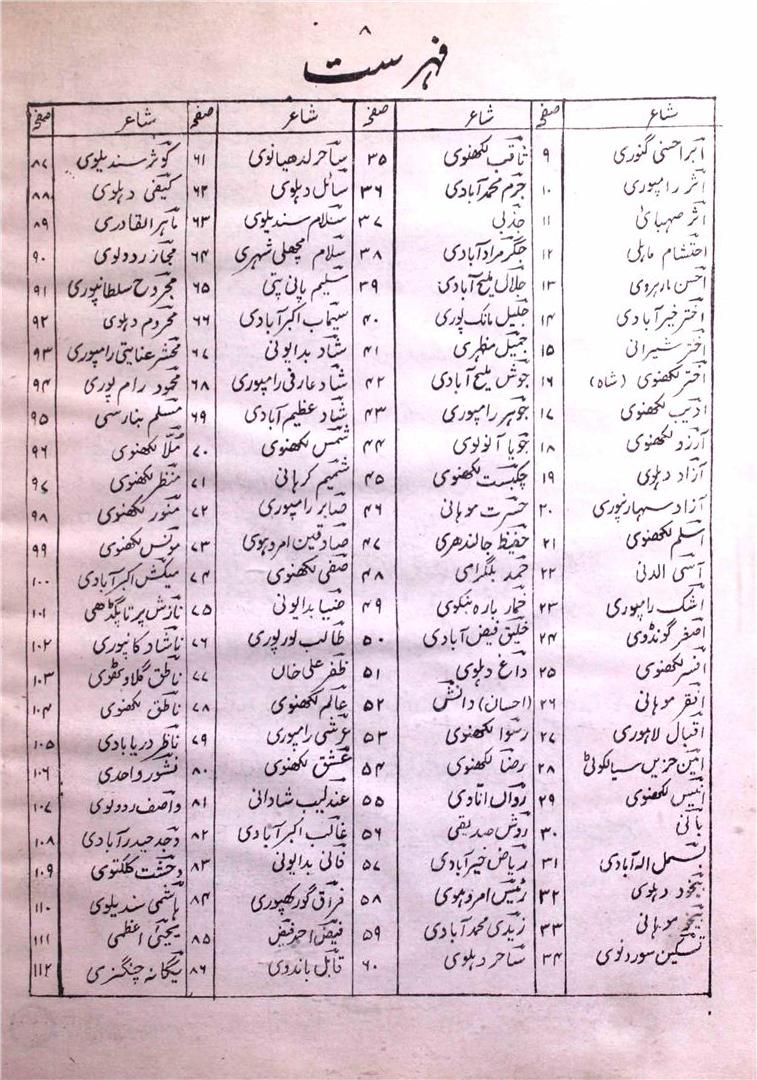 ۸
فہرست
شاعر صفحہ شاعر صفحہ شاعر صفحہ شاعر صفحہ
ابر احسنی گنوری ۹ ثاقب لکھنوی ۳۵ ساحر لدھیانوی ۶۱ کوثر سندیلوی ۸۷
اثر رامپوری ۱۰ جرم محمد آبادی ۳۶ سائل دہلوی ۶۲ کیفی دہلوی ۸۸
اثر صہبائی ۱۱ جذبی ۳۷ سلام سندیلوی ۶۳ ماہر القادری ۸۹
احتشام ماہلی ۱۲ جگر مرادآبادی ۳۸ سلام مچھلی شہری ۶۴ مجاز ردولوی ۹۰
احسن مارہروی ۱۳ جلال ملیح آبادی ۳۹ سلیم پانی پتی ۶۵ مجروح سلطانپوری ۹۱
اختر خیرآبادی ۱۴ جلیل مانک پوری ۴۰ سیماب اکبرآبادی ۶۶ محروم دہلوی ۹۲
اختر شیرانی ۱۵ جمیل مظہری ۴۱ شاد بدایونی ۶۷ محشر عنایتی رامپوری ۹۳
اختر لکھنوی (شاہ) ۱۶ جوش ملیح آبادی ۴۲ شاد عارفی رامپوری ۶۸ محمود رام پوری ۹۴
ادیب لکھنوی ۱۷ جوہر رامپوری ۴۳ شاد عظیم آبادی ۶۹ مسلم بنارسی ۹۵
آرزو لکھنوی ۱۸ جویا آنولوی ۴۴ شمس لکھنوی ۷۰ ملا لکھنوی ۹۶
آزاد دہلوی ۱۹ چکبست لکھنوی ۴۵ شمیم کرہانی ۷۱ منظر لکھنوی ۹۷
آزاد سہارنپوری ۲۰ حسرت موہانی ۴۶ صابر رامپوری ۷۲ منور لکھنوی ۹۸
اسلم لکھنوی ۲۱ حفیظ جالندھری ۴۷ صادقین امروہوی ۷۳ مونس لکھنوی ۹۹
آسی الدنی ۲۲ حمد بلگرامی ۴۸ صفی لکھنوی ۷۴ میکش اکبرآبادی ۱۰۰
اشک رامپوری ۲۳ خمار بارہ بنکوی ۴۹ ضیا بدایونی ۷۵ نازش پرتاپگڈھی ۱۰۱
اصغر گونڈوی ۲۴ خلیق فیض آبادی ۵۰ طالب لورپوری ۷۶ ناشاد کانپوری ۱۰۲
افسر لکھنوی ۲۵ داغ دہلوی ۵۱ ظفر علی خاں ۷۷ ناطق گلاوٹھوی ۱۰۳
افقر موہانی ۲۶ (احسان) دانش ۵۲ عالم لکھنوی ۷۸ ناطق لکھنوی ۱۰۴
اقبال لاہوری ۲۷ رسوا لکھنوی ۵۳ عرشی رامپوری ۷۹ ناظر دریابادی ۱۰۵
امین حزیں سیالکوٹی ۲۸ رضا لکھنوی ۵۴ عشق لکھنوی ۸۰ نشور واحدی ۱۰۶
انیس لکھنوی ۲۹ رواں اناوی ۵۵ عندلیب شادانی ۸۱ واصف ردولوی ۱۰۷
بانی ۳۰ روش صدیقی ۵۶ غالب اکبرآبادی ۸۲ وجد حیدرآبادی ۱۰۸
بسمل الہ آبادی ۳۱ ریاض خیرآبادی ۵۷ فانی بدایونی ۸۳ وحشت کلکتوی ۱۰۹
بیخود دہلوی ۳۲ رئیس امروہوی ۵۸ فراق گورکھپوری ۸۴ ہاشمی سندیلوی ۱۱۰
بیخود موہانی ۳۳ زیدی محمد آبادی ۵۹ فیض احمد فیض ۸۵ یحییٰ اعظمی ۱۱۱
تسکین سوردنوی ۳۴ ساحر دہلوی ۶۰ قابل باندوی ۸۶ یگانہ چنگیزی ۱۱۲